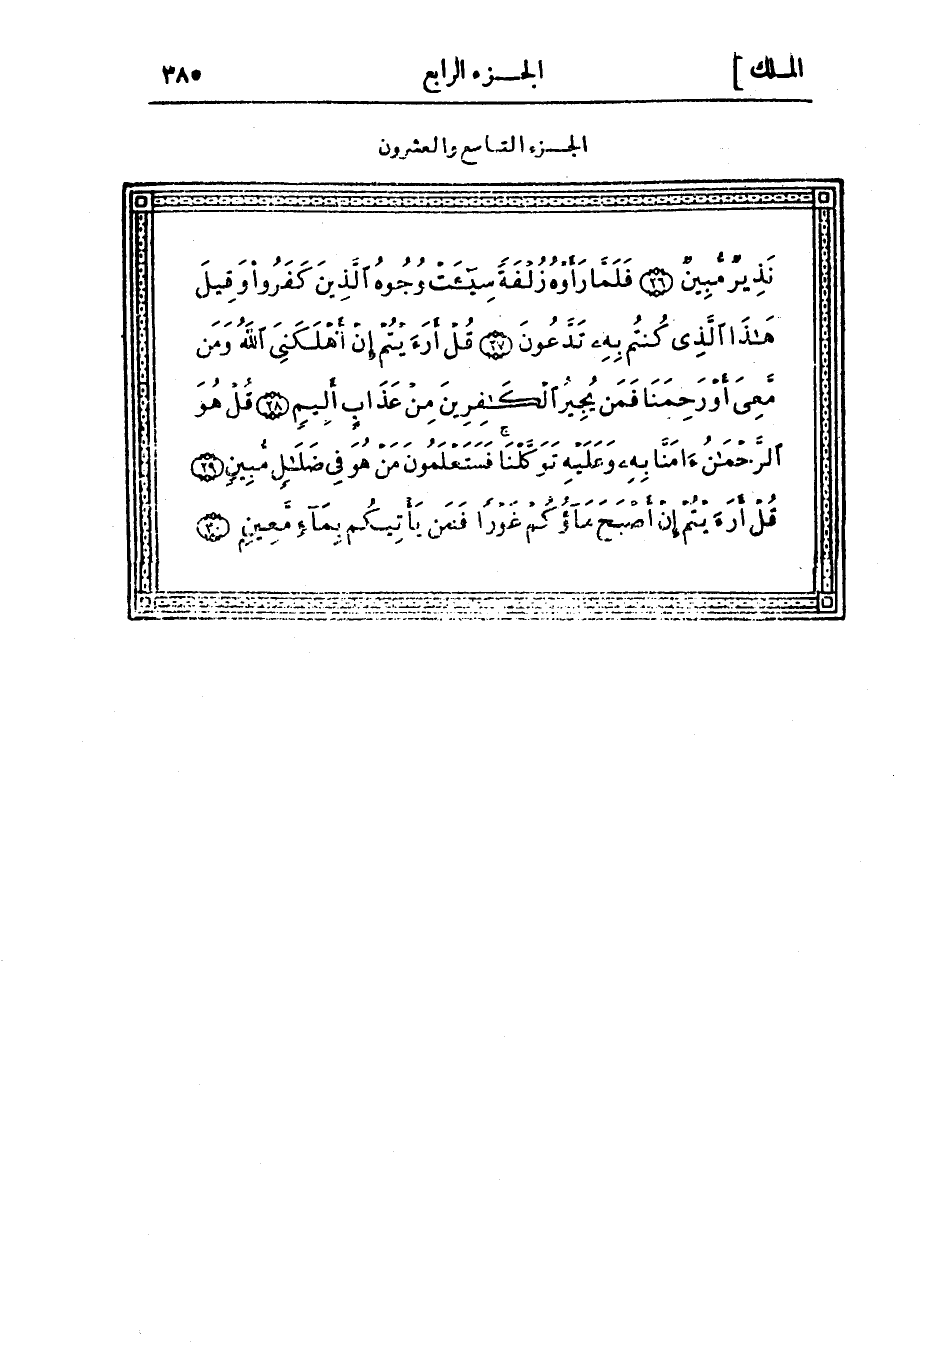 المـلك ] الجـــزء الرابع ٣٨٥
الجـــزء التاسع والعشرون
نَذِيرٌ مُّبِينٌ ۝٢٦ فَلَمَّا رَأَوْهُ زُلْفَةً سِيٓـَٔتْ وُجُوهُ ٱلَّذِينَ كَفَرُوا۟ وَقِيلَ
هَـٰذَا ٱلَّذِى كُنتُم بِهِۦ تَدَّعُونَ ۝٢٧ قُلْ أَرَءَيْتُمْ إِنْ أَهْلَكَنِىَ ٱللَّهُ وَمَن
مَّعِىَ أَوْ رَحِمَنَا فَمَن يُجِيرُ ٱلْكَـٰفِرِينَ مِنْ عَذَابٍ أَلِيمٍ ۝٢٨ قُلْ هُوَ
ٱلرَّحْمَـٰنُ ءَامَنَّا بِهِۦ وَعَلَيْهِ تَوَكَّلْنَا ۚ فَسَتَعْلَمُونَ مَنْ هُوَ فِى ضَلَـٰلٍ مُّبِينٍ ۝٢٩
قُلْ أَرَءَيْتُمْ إِنْ أَصْبَحَ مَآؤُكُمْ غَوْرًا فَمَن يَأْتِيكُم بِمَآءٍ مَّعِينٍ ۝٣٠